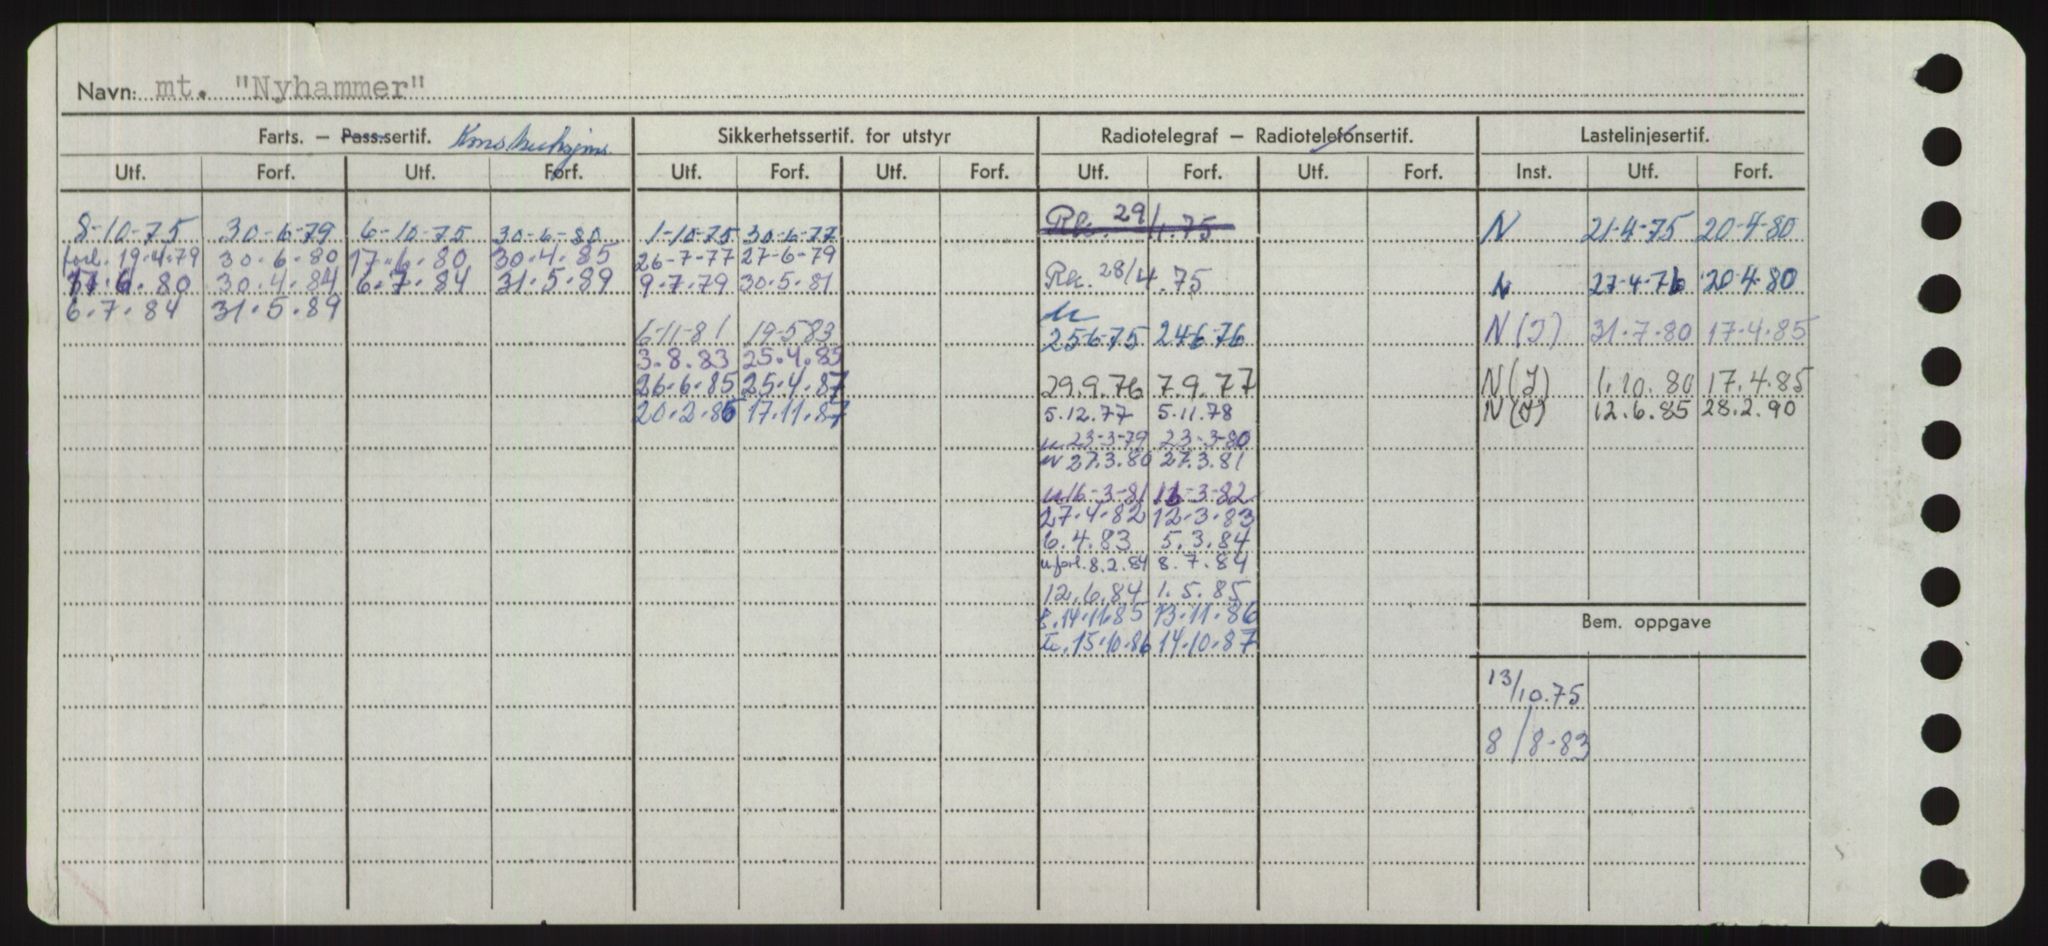 Navn: mt. "Nyhammer"
Farts. — Pass.sertif. Konstruksjons. Sikkerhetssertif. for utstyr Radiotelegraf — Radiotelefonsertif. Lastelinjesertif.
Utf. Forf. Utf. Forf. Utf. Forf. Utf. Forf. Utf. Forf. Utf. Forf. Inst. Utf. Forf.
8-10-75 30-6-79 6-10-75 30-6-80 1-10-75 30-6-77 Rk. 29/1.75 N 21-4-75 20-4-80
forl. 19.4.79 30.6.80 17.6.80 30.4.85 26-7-77 27-6-79
17.6.80 30.4.84 6.7.84 31.5.89 9.7.79 30.5.81 Rk. 28/4.75 N 27-4-76 20.4.80
6.7.84 31.5.89
6-11-81 19-5 83 25-6-75 24-6-76 N (I) 31.7.80 17.4.85
3.8.83 25.4.85
26.6.85 25.4.87 29.9.76 7.9.77 N (I) 1.10.80 17.4.85
20.2.86 17.11.87 5.12.77 5.11.78 N (I) 12.6.85 28.2.90
u 23-3-79 23-3-80
u 27.3.80 27.3.81
u 16-3-81 16-3-82
27.4.82 12.3.83
6.4.83 5.3.84
u forl. 8.2.84 8.7.84
12.6.84 1.5.85
14.11.85 13.11.86
Bem. oppgave
15.10.86 14.10.87
13/10.75
8/8-83